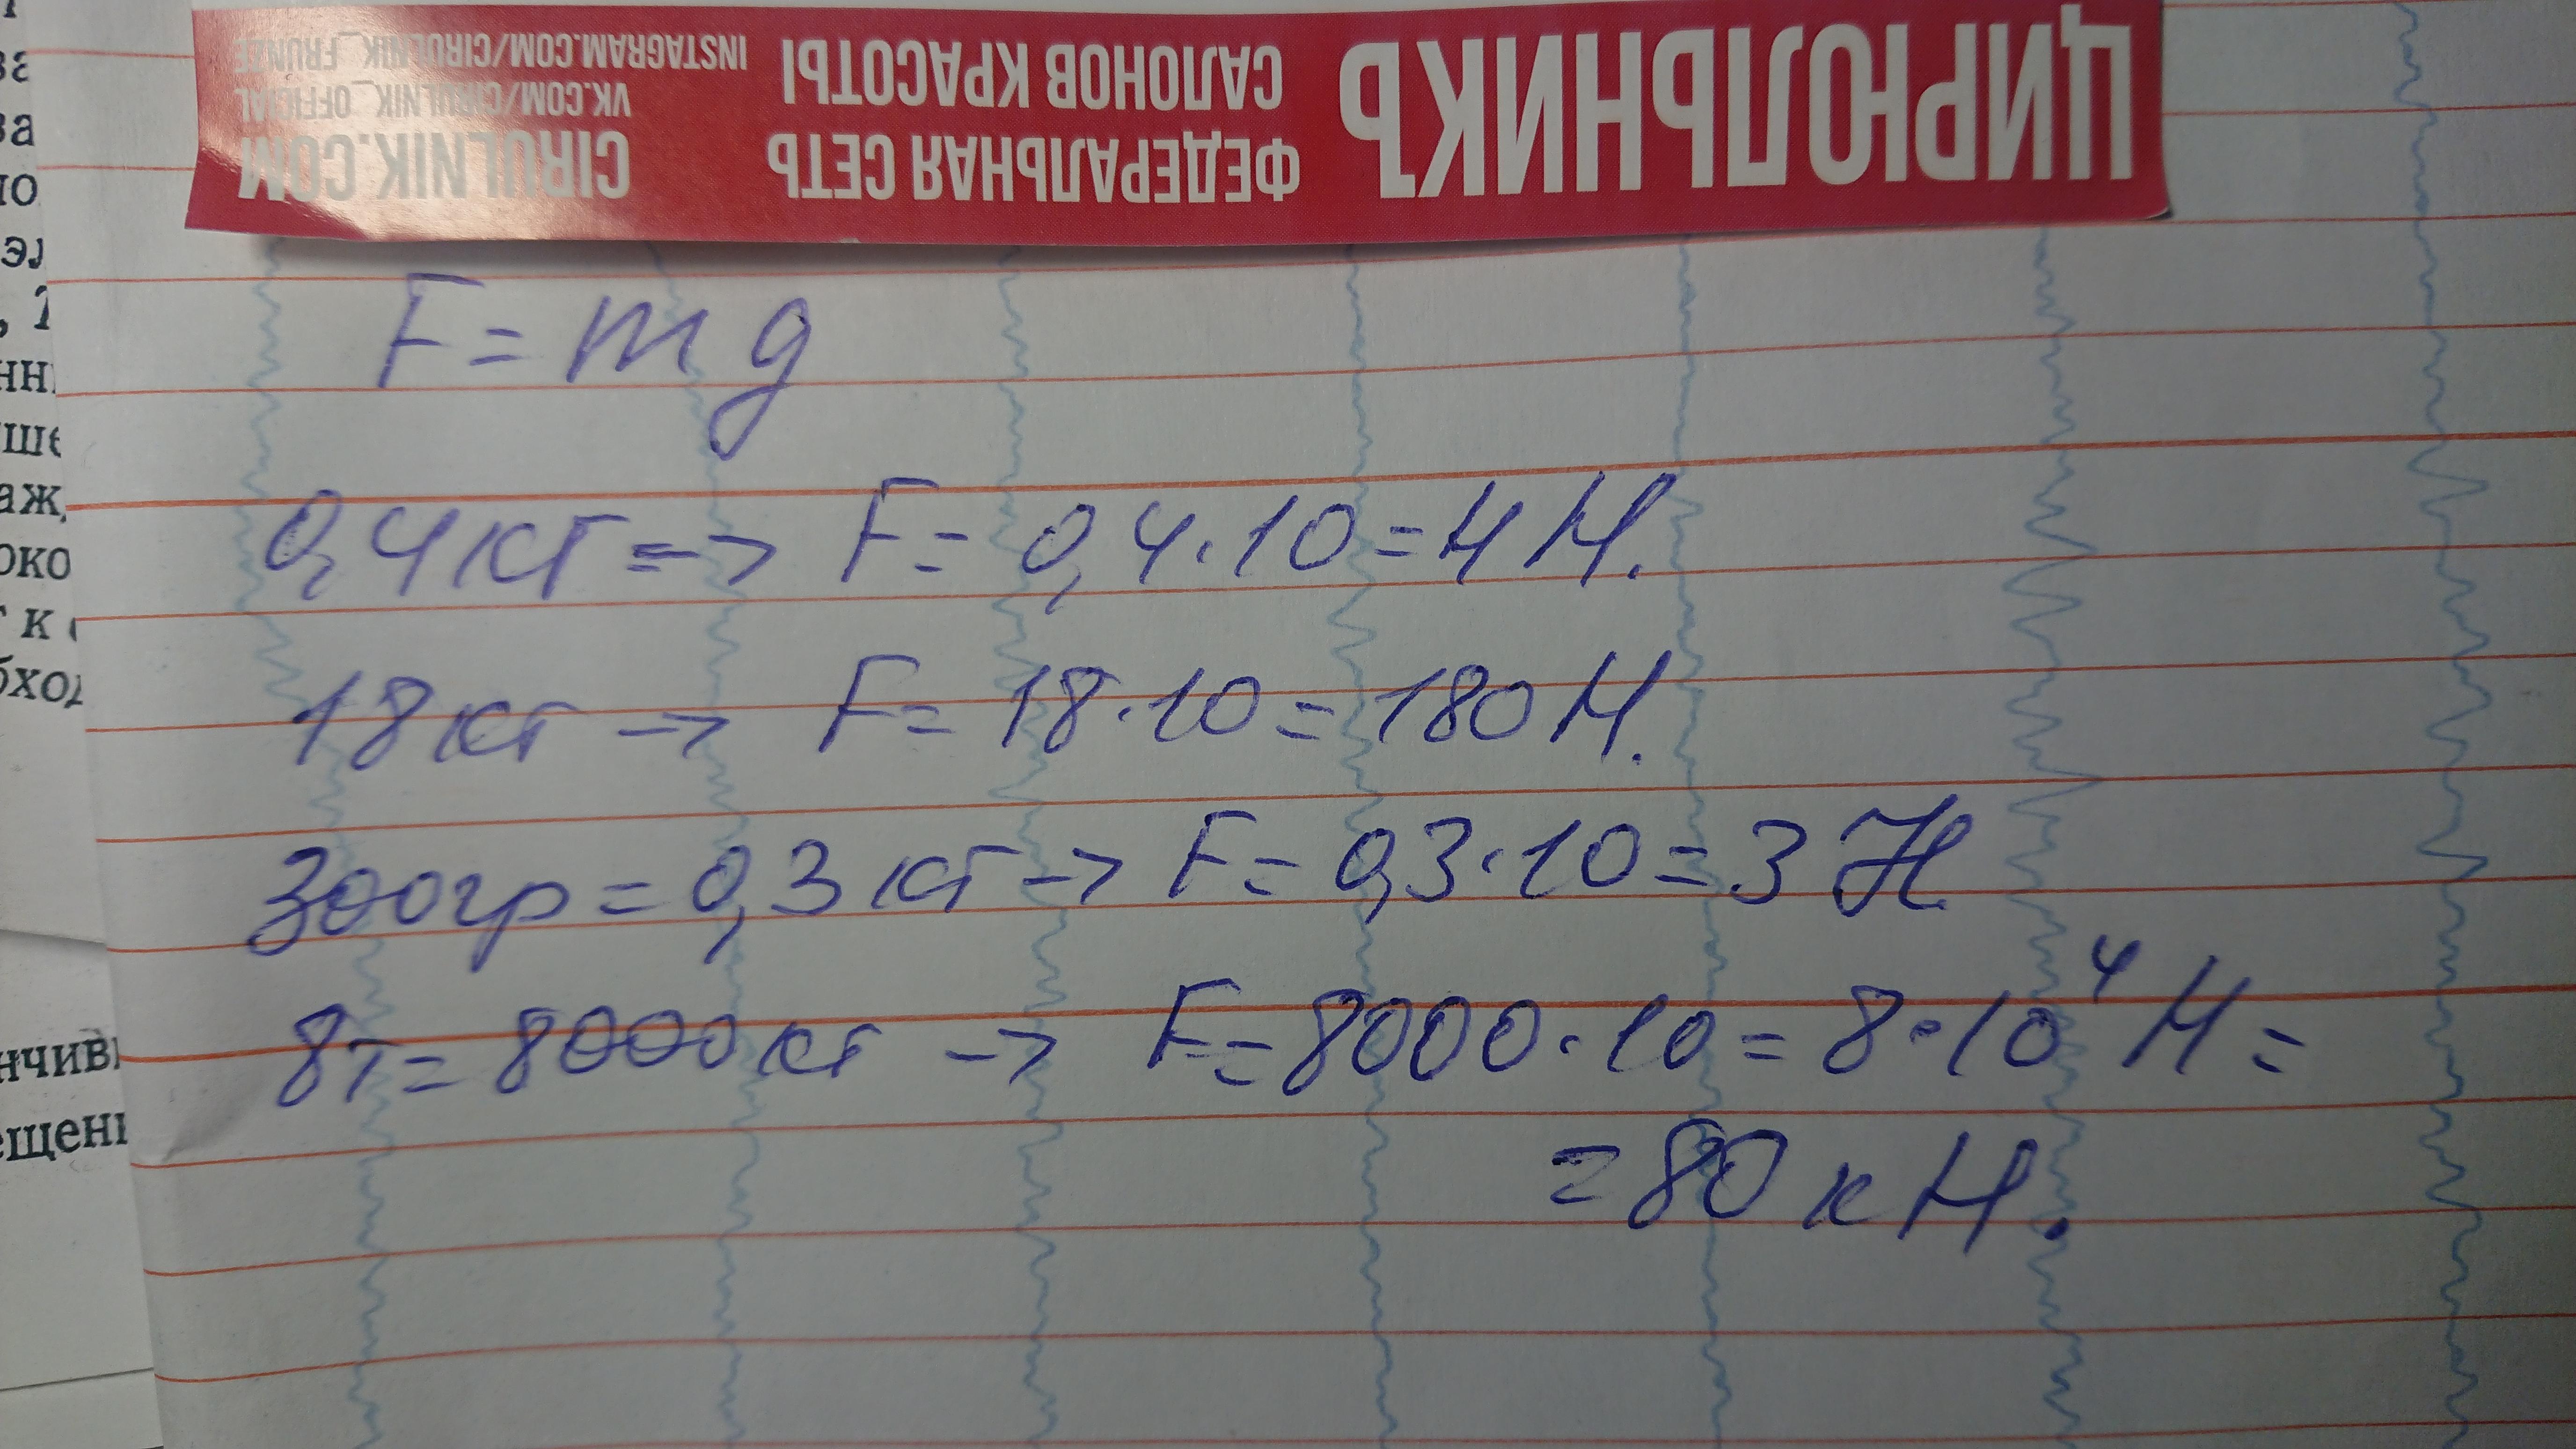 ЦИРЮЛЬНИКЪ
ФЕДЕРАЛЬНАЯ СЕТЬ
САЛОНОВ КРАСОТЫ
CIRULNIK.COM
VK.COM/CIRULNIK_OFFICIAL
INSTAGRAM.COM/CIRULNIK_FRUNZE
F = mg
0,4 кг => F = 0,4·10 = 4 Н.
18 кг -> F = 18·10 = 180 Н.
300гр = 0,3 кг -> F = 0,3·10 = 3 Н.
8т = 8000 кг -> F = 8000·10 = 8·10⁴ Н =
= 80 кН.